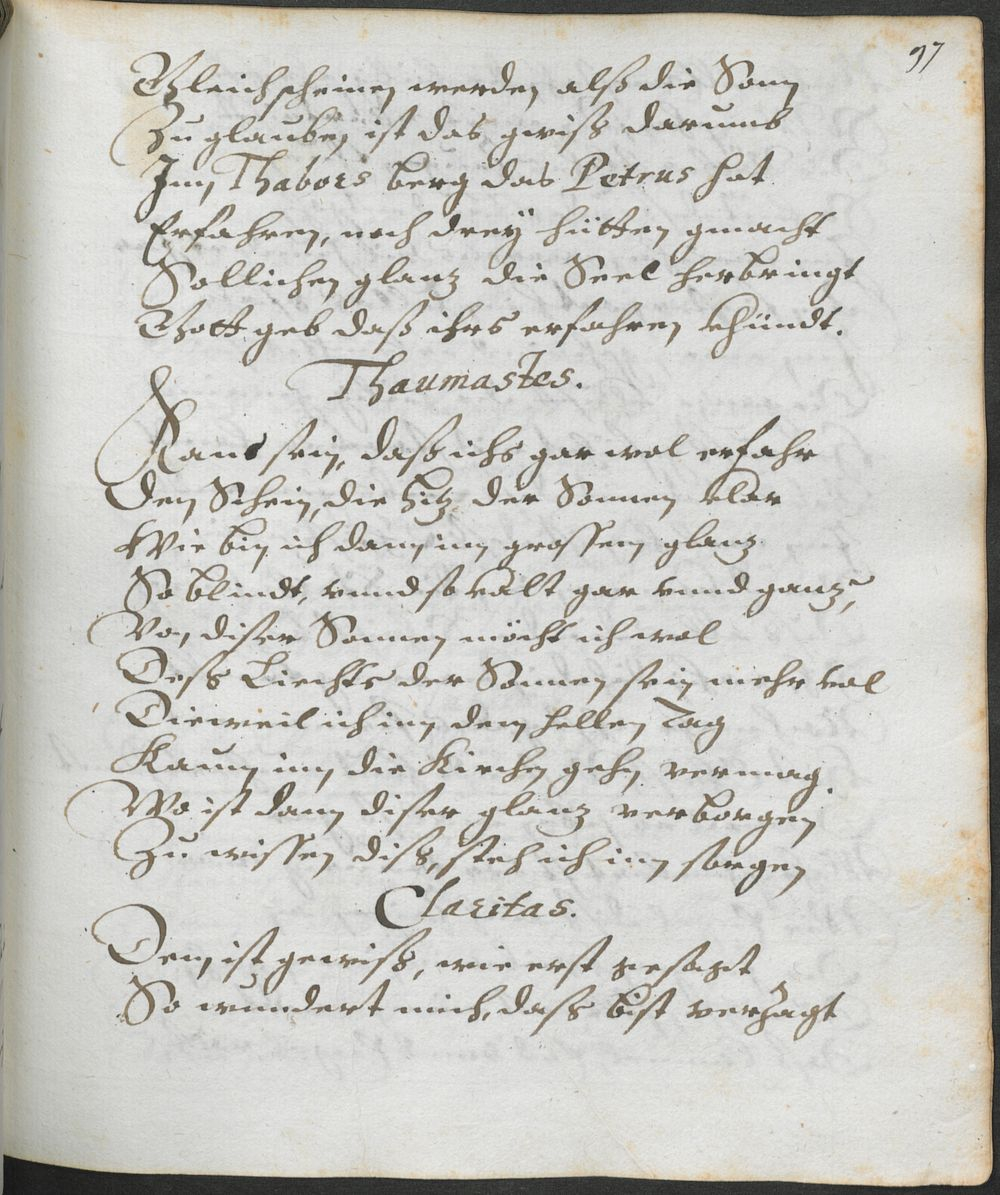 97
Gleich scheinen werden alß die Sonn
Zu glauben ist das gwiß darumb
Im Thabors berg das Petrus hat
Erfahren, noch drey hütten gmacht
Sollichen glanz die Seel herbringt
Gott geb daß ihrs erfahren khündt.
Thaumastes.
Kans sein, daß ichs gar wol erfahr
Den Schein, die hiz der Sonnen klar
Wie bin ich dann im grossem glanz
So blindt, vnnd so kalt gar vnnd ganz,
Von diser Sonnen möcht ich wol
Deß Liechts der Sonnen sein mehr vol
Dieweil ich inn dem hellen Tag
Kaum inn die Kirchen gehn vermag.
Wo ist dann diser glanz verborgen
Zu wissen diß, steh ich inn sorgen
Claritas.
Dem ist gewiß, wie erst gesagt
So wundert mich, daß bist verzagt